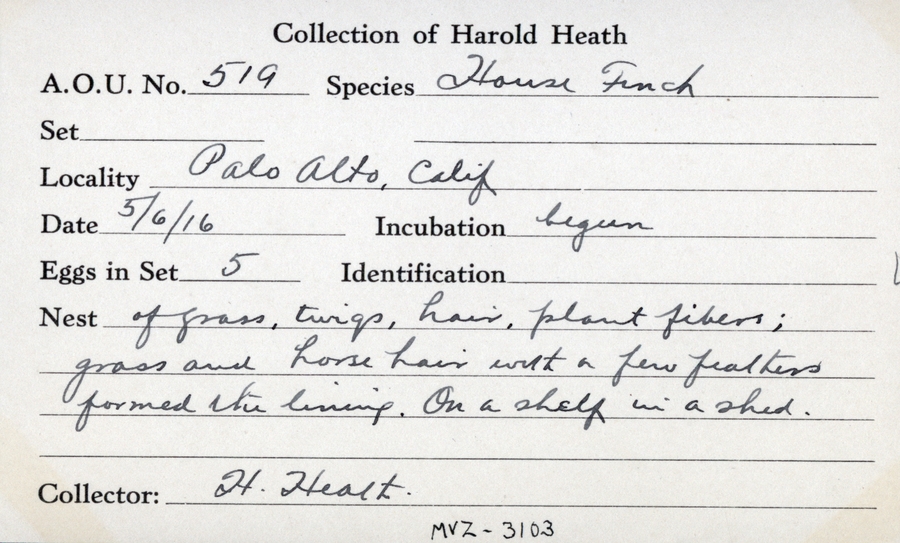 Collection of Harold Heath
A.O.U. No. 519 Species House Finch
Set
Locality Palo Alto, Calif
Date 5/6/16 Incubation begun
Eggs in Set 5 Identification
Nest of grass, twigs, hair, plant fibers;
grass and horse hair with a few feathers
formed the lining. On a shelf in a shed.
Collector: H. Heath.
MVZ-3103